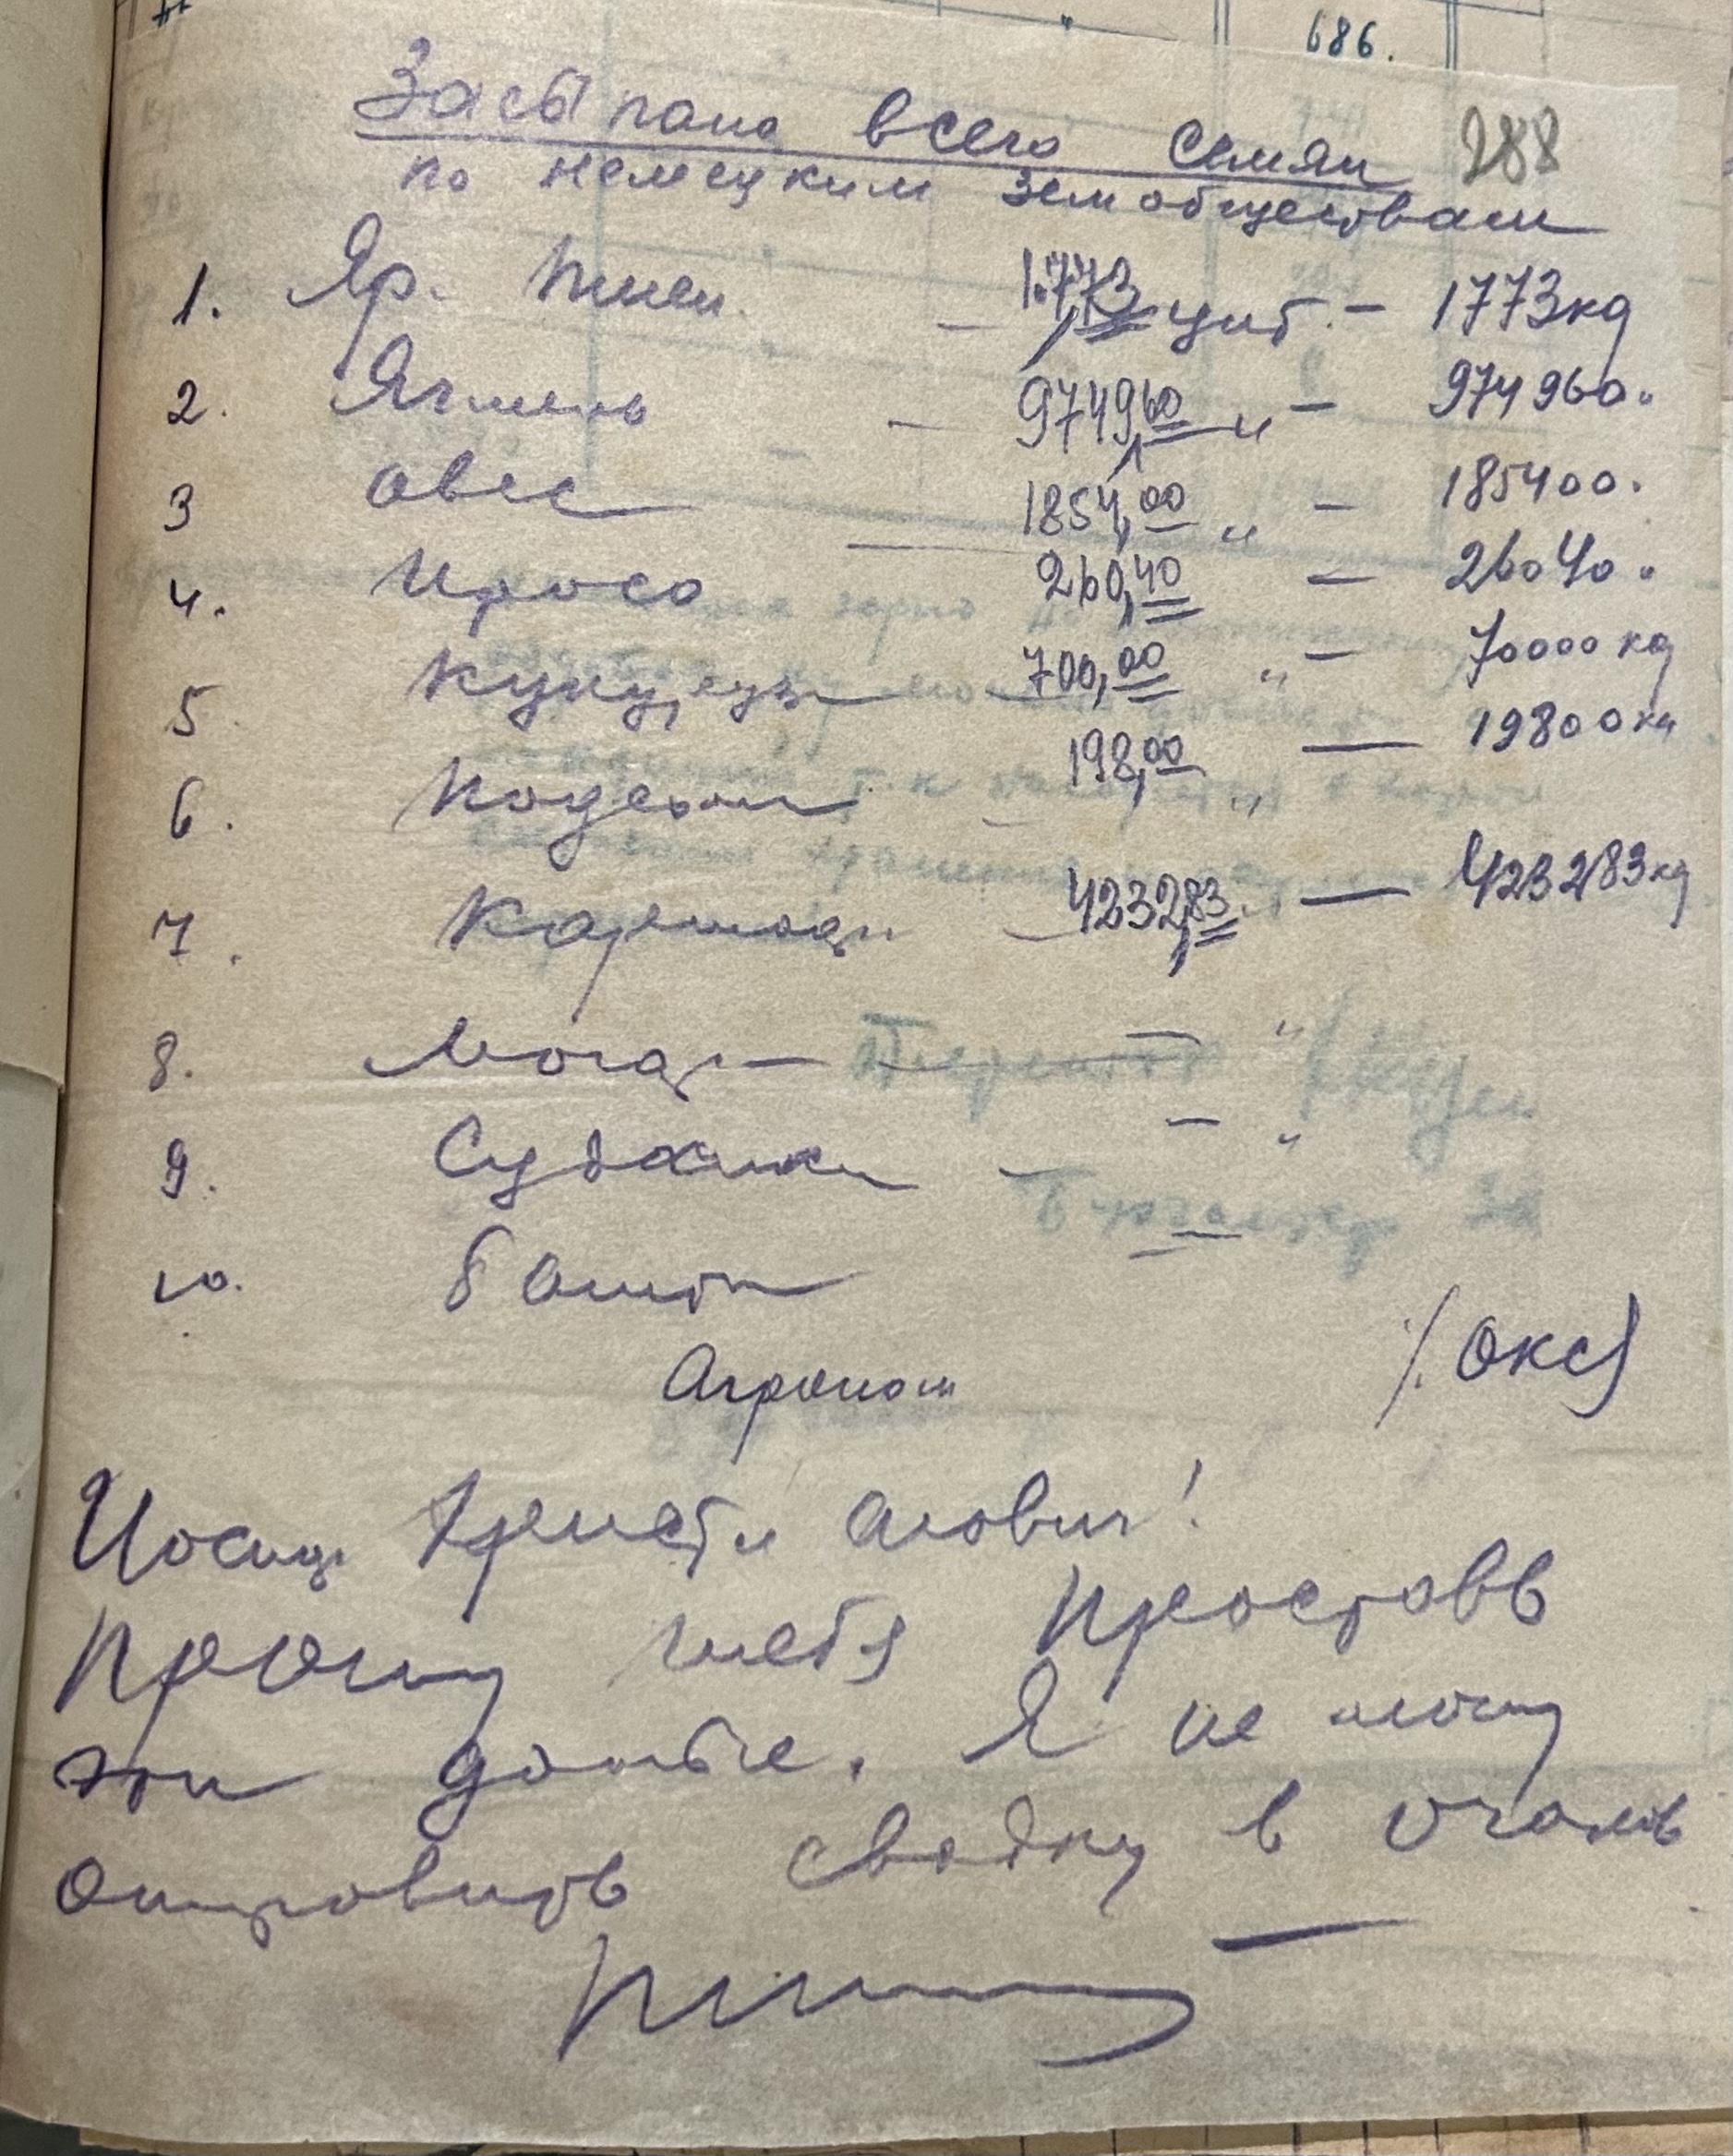 686.
288
Засыпано всего семян
по немецким земобществам
1. Яр. пшен. – 17,73 цнт. – 1773 кг
2. Ячмень – 9749,60 " – 974960 "
3 Овес 1854,00 " – 185400 "
4. Просо 260,40 – 26040 "
5 Кукурузы 700,00 " – 70000 кг
6. Подсолн – 198,00 " – 19800 кг
7. Картоф – 4232,83 – 423283 кг
8. Могар – – "
9. Суданки – – "
10. Башт –
Агроном / Окс /
Иосиф Христианович!
Прошу тебя проставь
эти данные. Я не могу
отправить сводку в Очаков